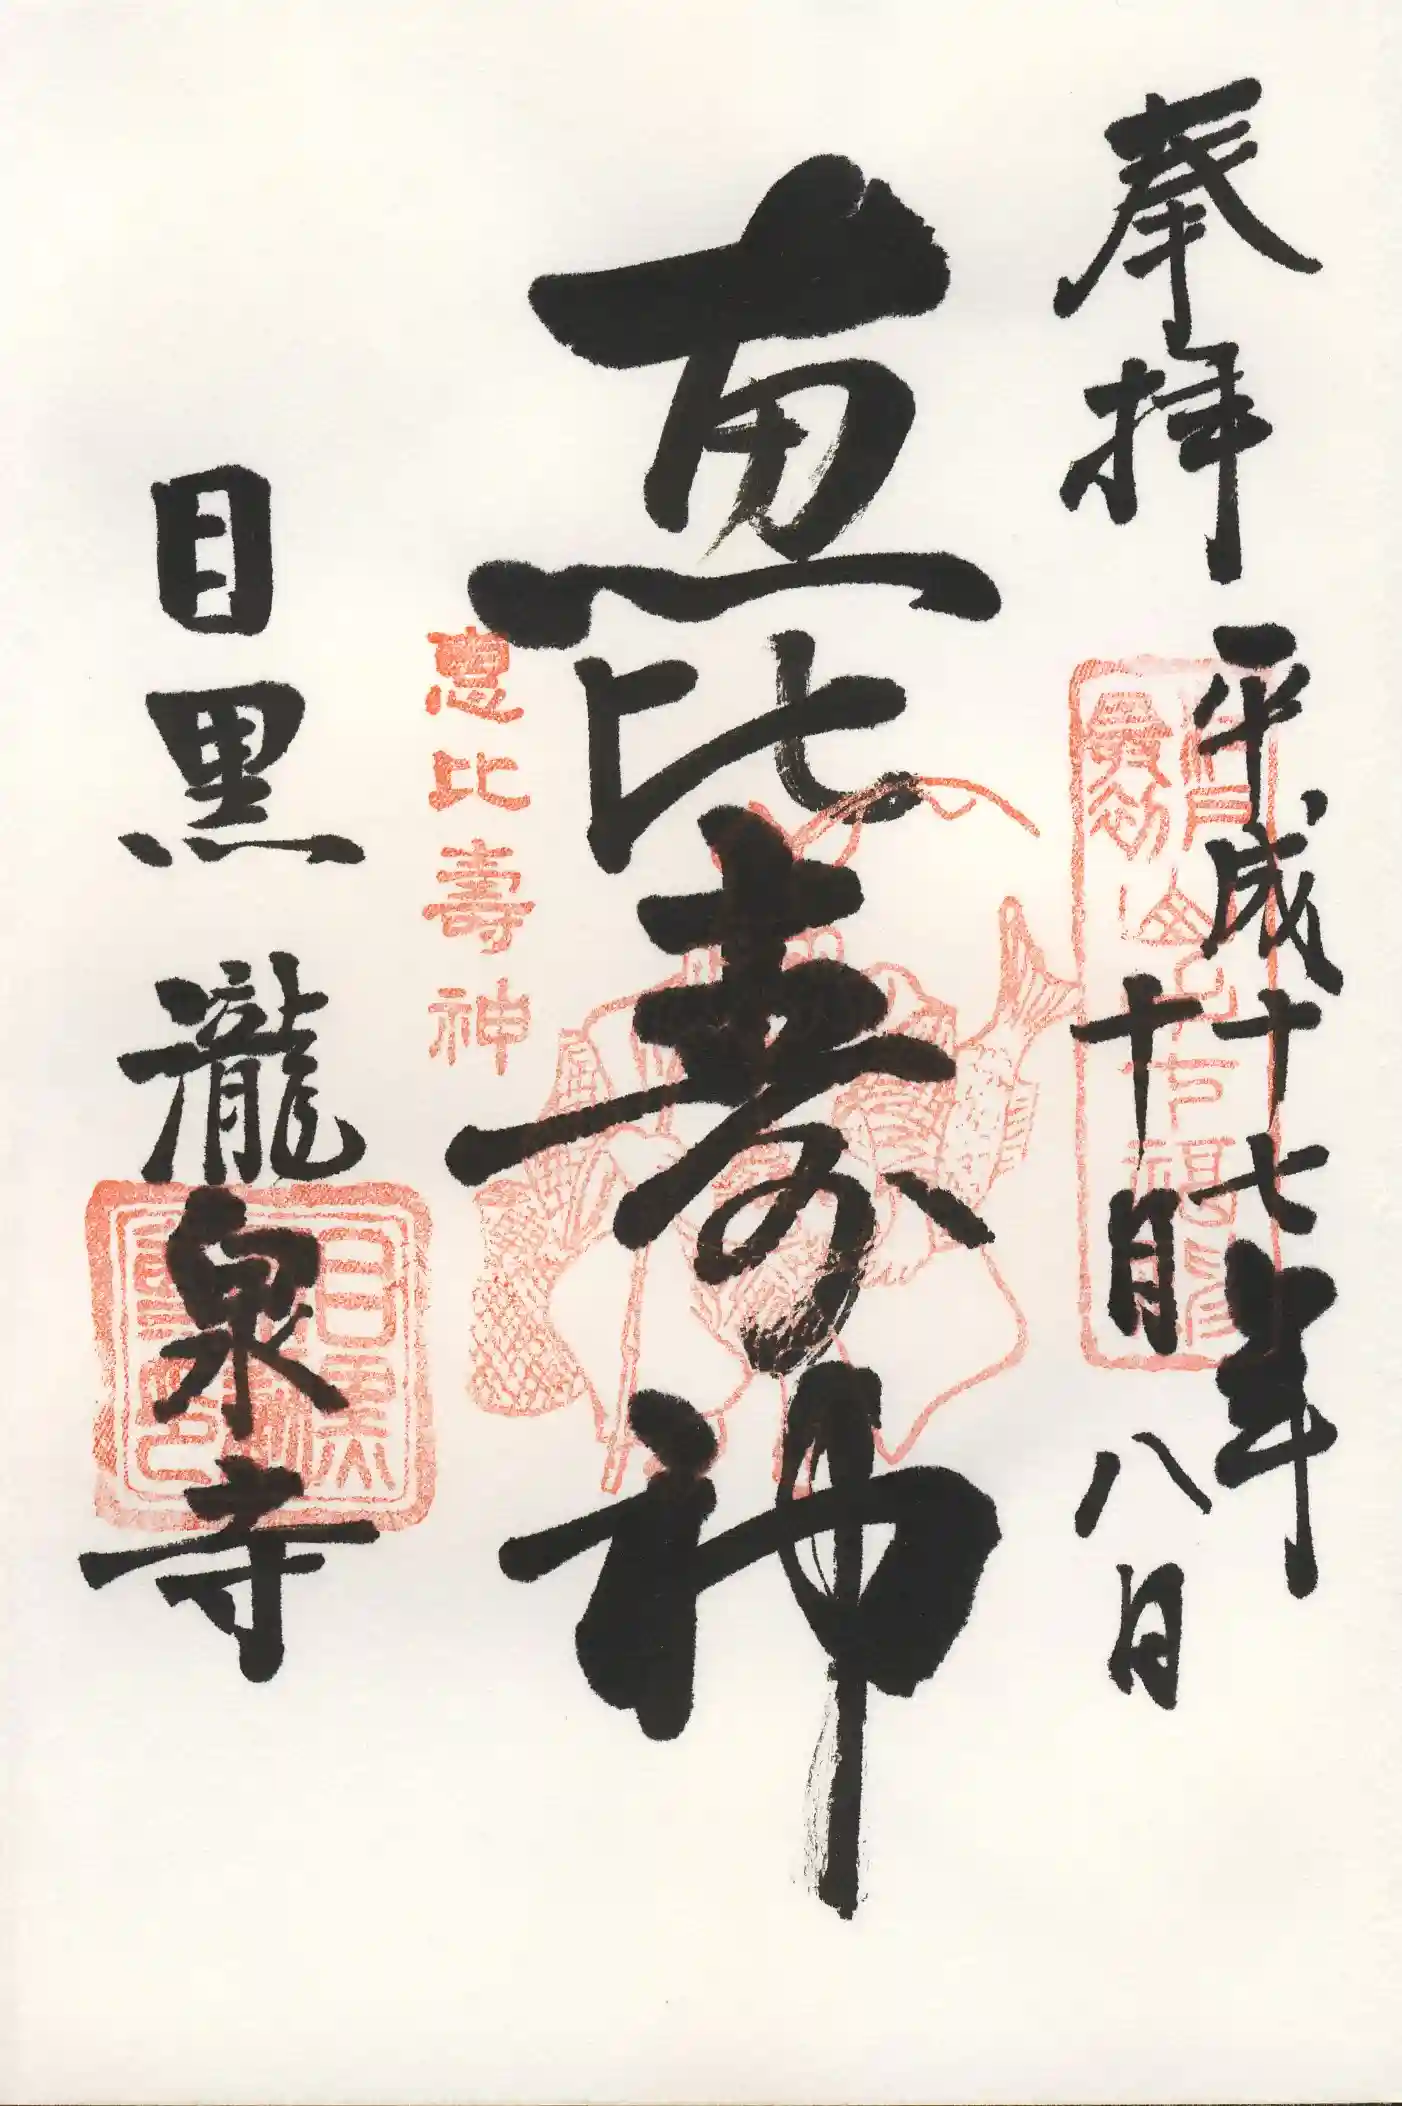 奉拝
平成十七年
十月八日
恵比寿神
恵比壽神
目黒瀧泉寺